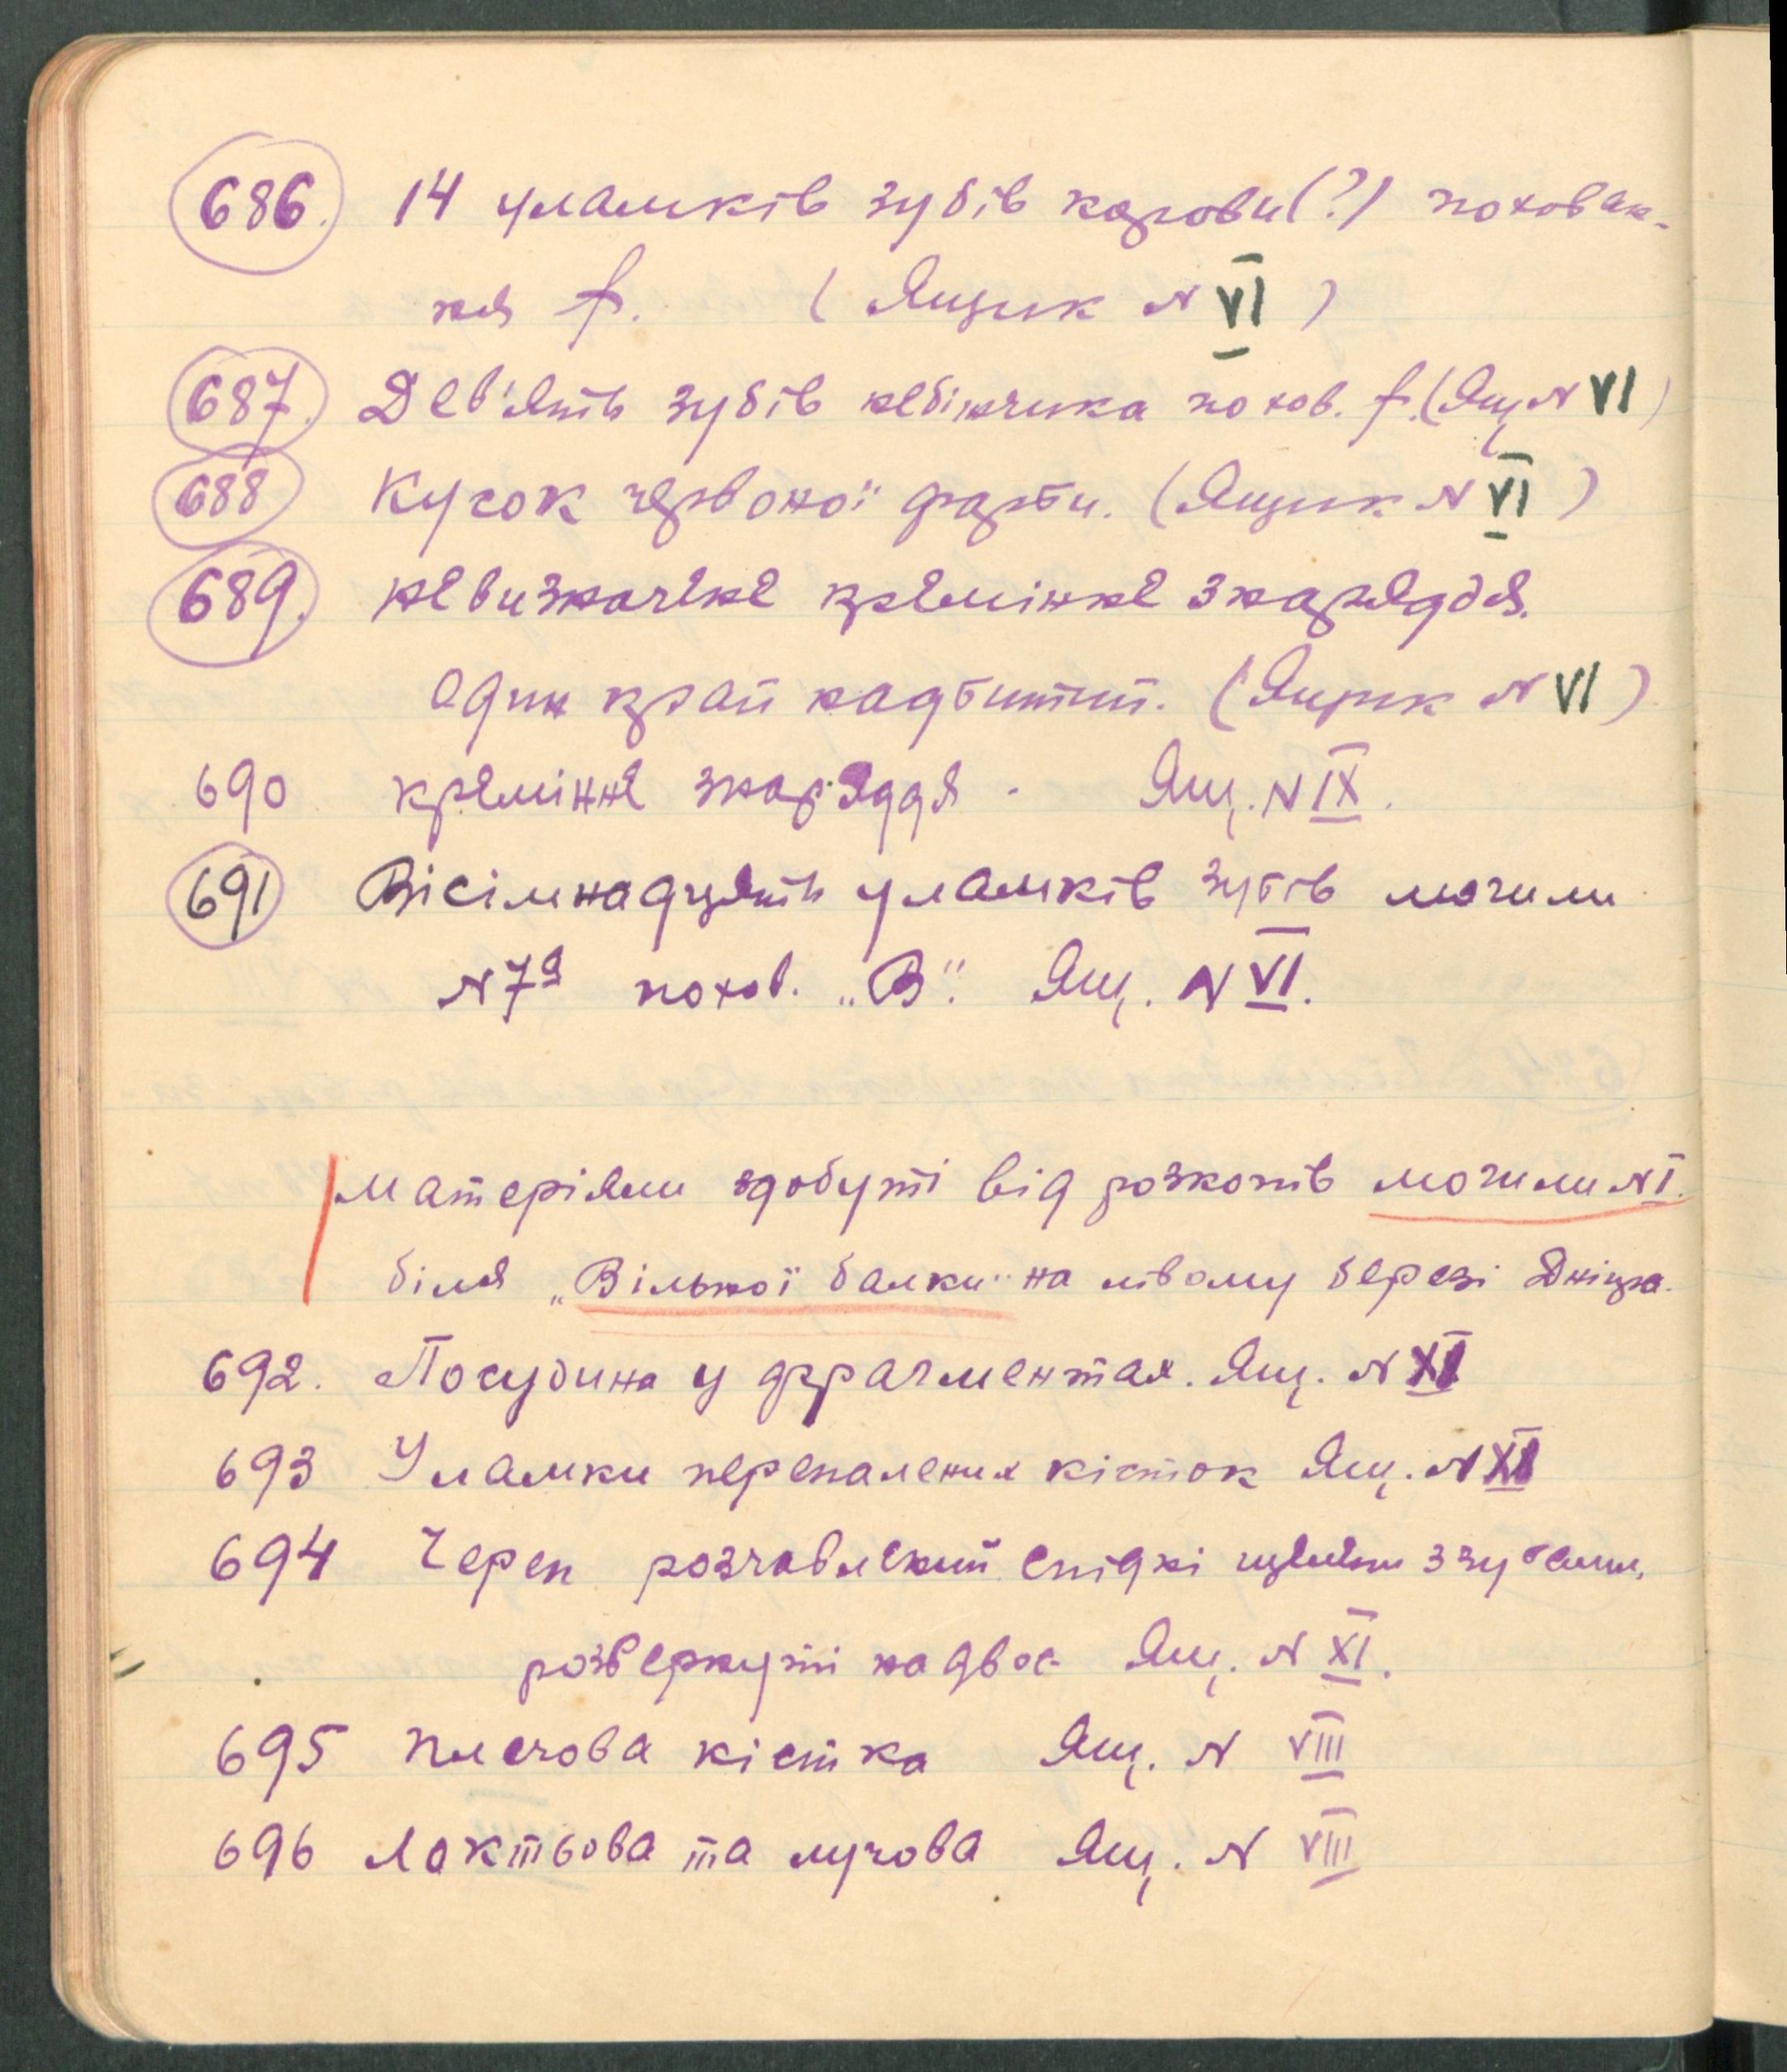 686. 14 уламків зубів корови(?) похован-
ня f. (Ящик N VI)
687. Дев'ять зубів небіжчика похов. f. (Ящ N VI)
688 Кусок червоної фарби. (Ящик N VI)
689. невизначене кремінне знаряддя.
один край надбитий. (Ящик N VI)
690 кремінне знаряддя. Ящ. N IX.
691 Вісімнадцять уламків зубів могили
N 7а похов. „В“. Ящ. N VI.
матеріяли здобуті від розкопів могили N I.
біля „Вільної балки“ на лівому березі Дніпра.
692. Посудина у фрагментах. Ящ. N XI
693 Уламки перепалених кісток Ящ. N XI
694 Череп розчавлений спідні щелепи з зубами,
розвернуті надвоє Ящ. N XI.
695 плечова кістка Ящ. N VIII
696 Локтьова та лучова Ящ. N VIII